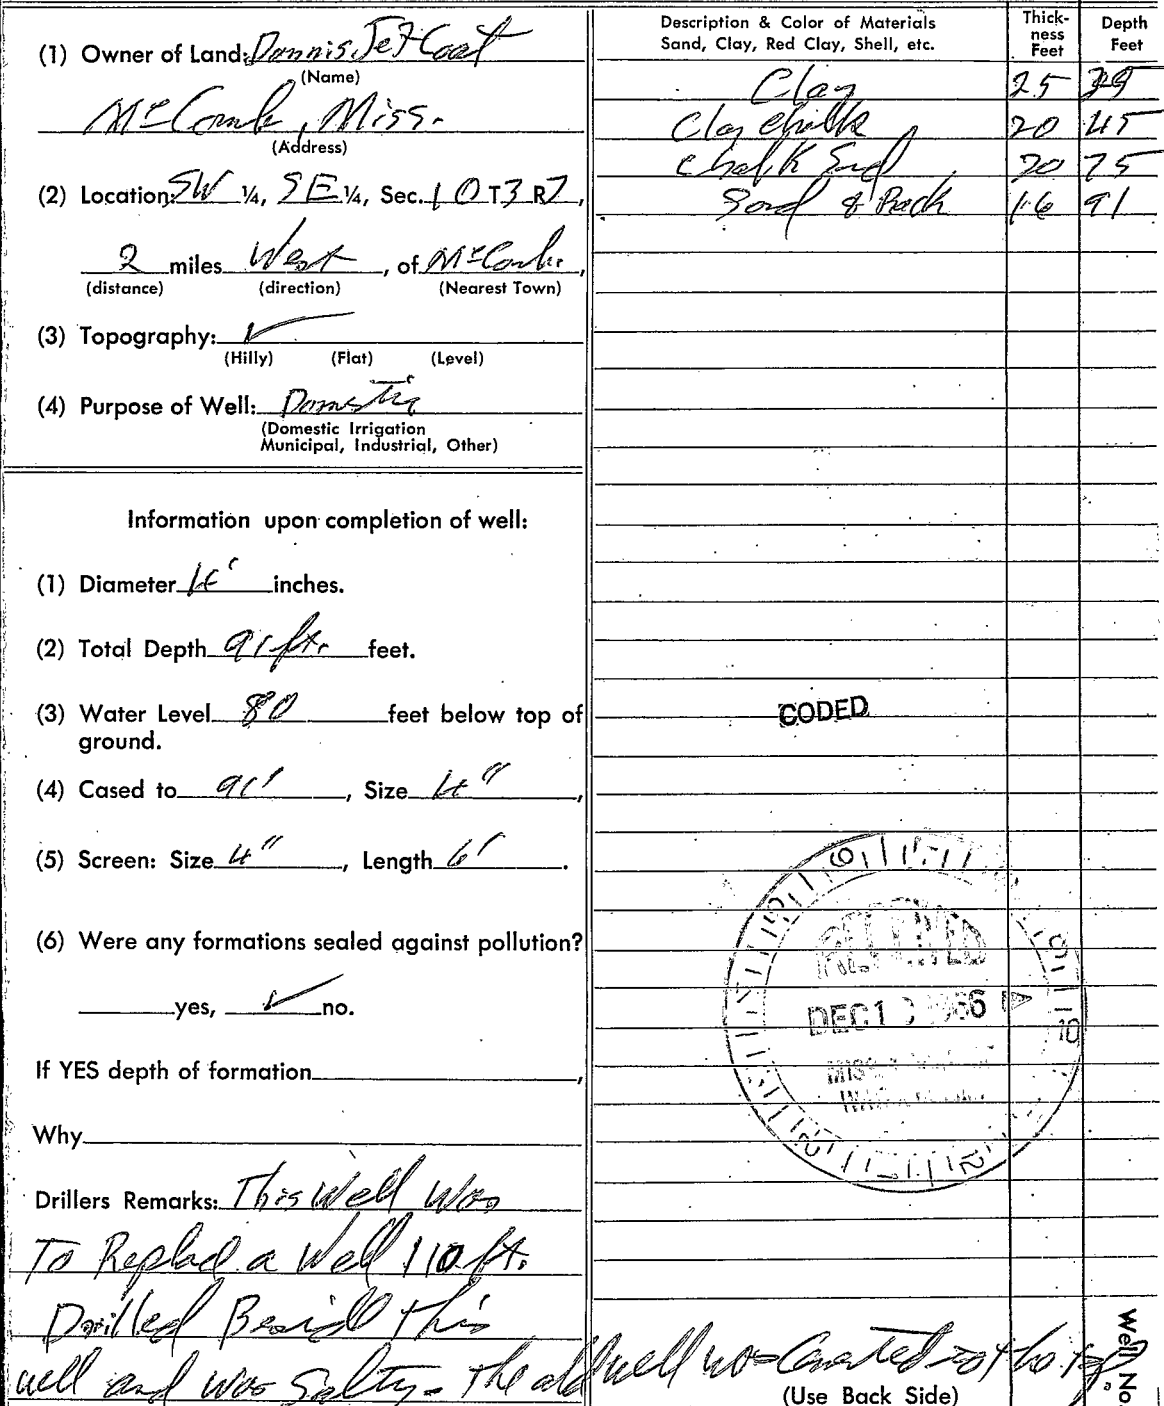 (1) Owner of Land: Dannis Jef Coat
(Name)
McComb, Miss.
(Address)
(2) Location: SW ¼, SE ¼, Sec. 10 T3 R7,
2 miles West, of McComb,
(distance) (direction) (Nearest Town)
(3) Topography: ✓
(Hilly) (Flat) (Level)
(4) Purpose of Well: Domestic
(Domestic Irrigation
Municipal, Industrial, Other)
Information upon completion of well:
(1) Diameter 4" inches.
(2) Total Depth 91 ft. feet.
(3) Water Level 80 feet below top of
ground.
(4) Cased to 91', Size 4",
(5) Screen: Size 4", Length 6'.
(6) Were any formations sealed against pollution?
yes, ✓ no.
If YES depth of formation,
Why
Drillers Remarks: This Well Was
To Replad a Well 110 ft.
Drilled Besid this
well and was Salty - The old well was to the top.
Description & Color of Materials
Sand, Clay, Red Clay, Shell, etc.
Thick-
ness
Feet
Depth
Feet
Clay 25
Clay Chalk 20 45
Chalk Sand 75
Sand & Rock 16 91
CODED
RECEIVED
DEC 1 1966
(Use Back Side)
Well No.